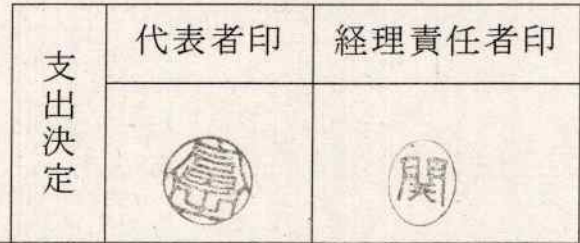 支出決定
代表者印
経理責任者印
関